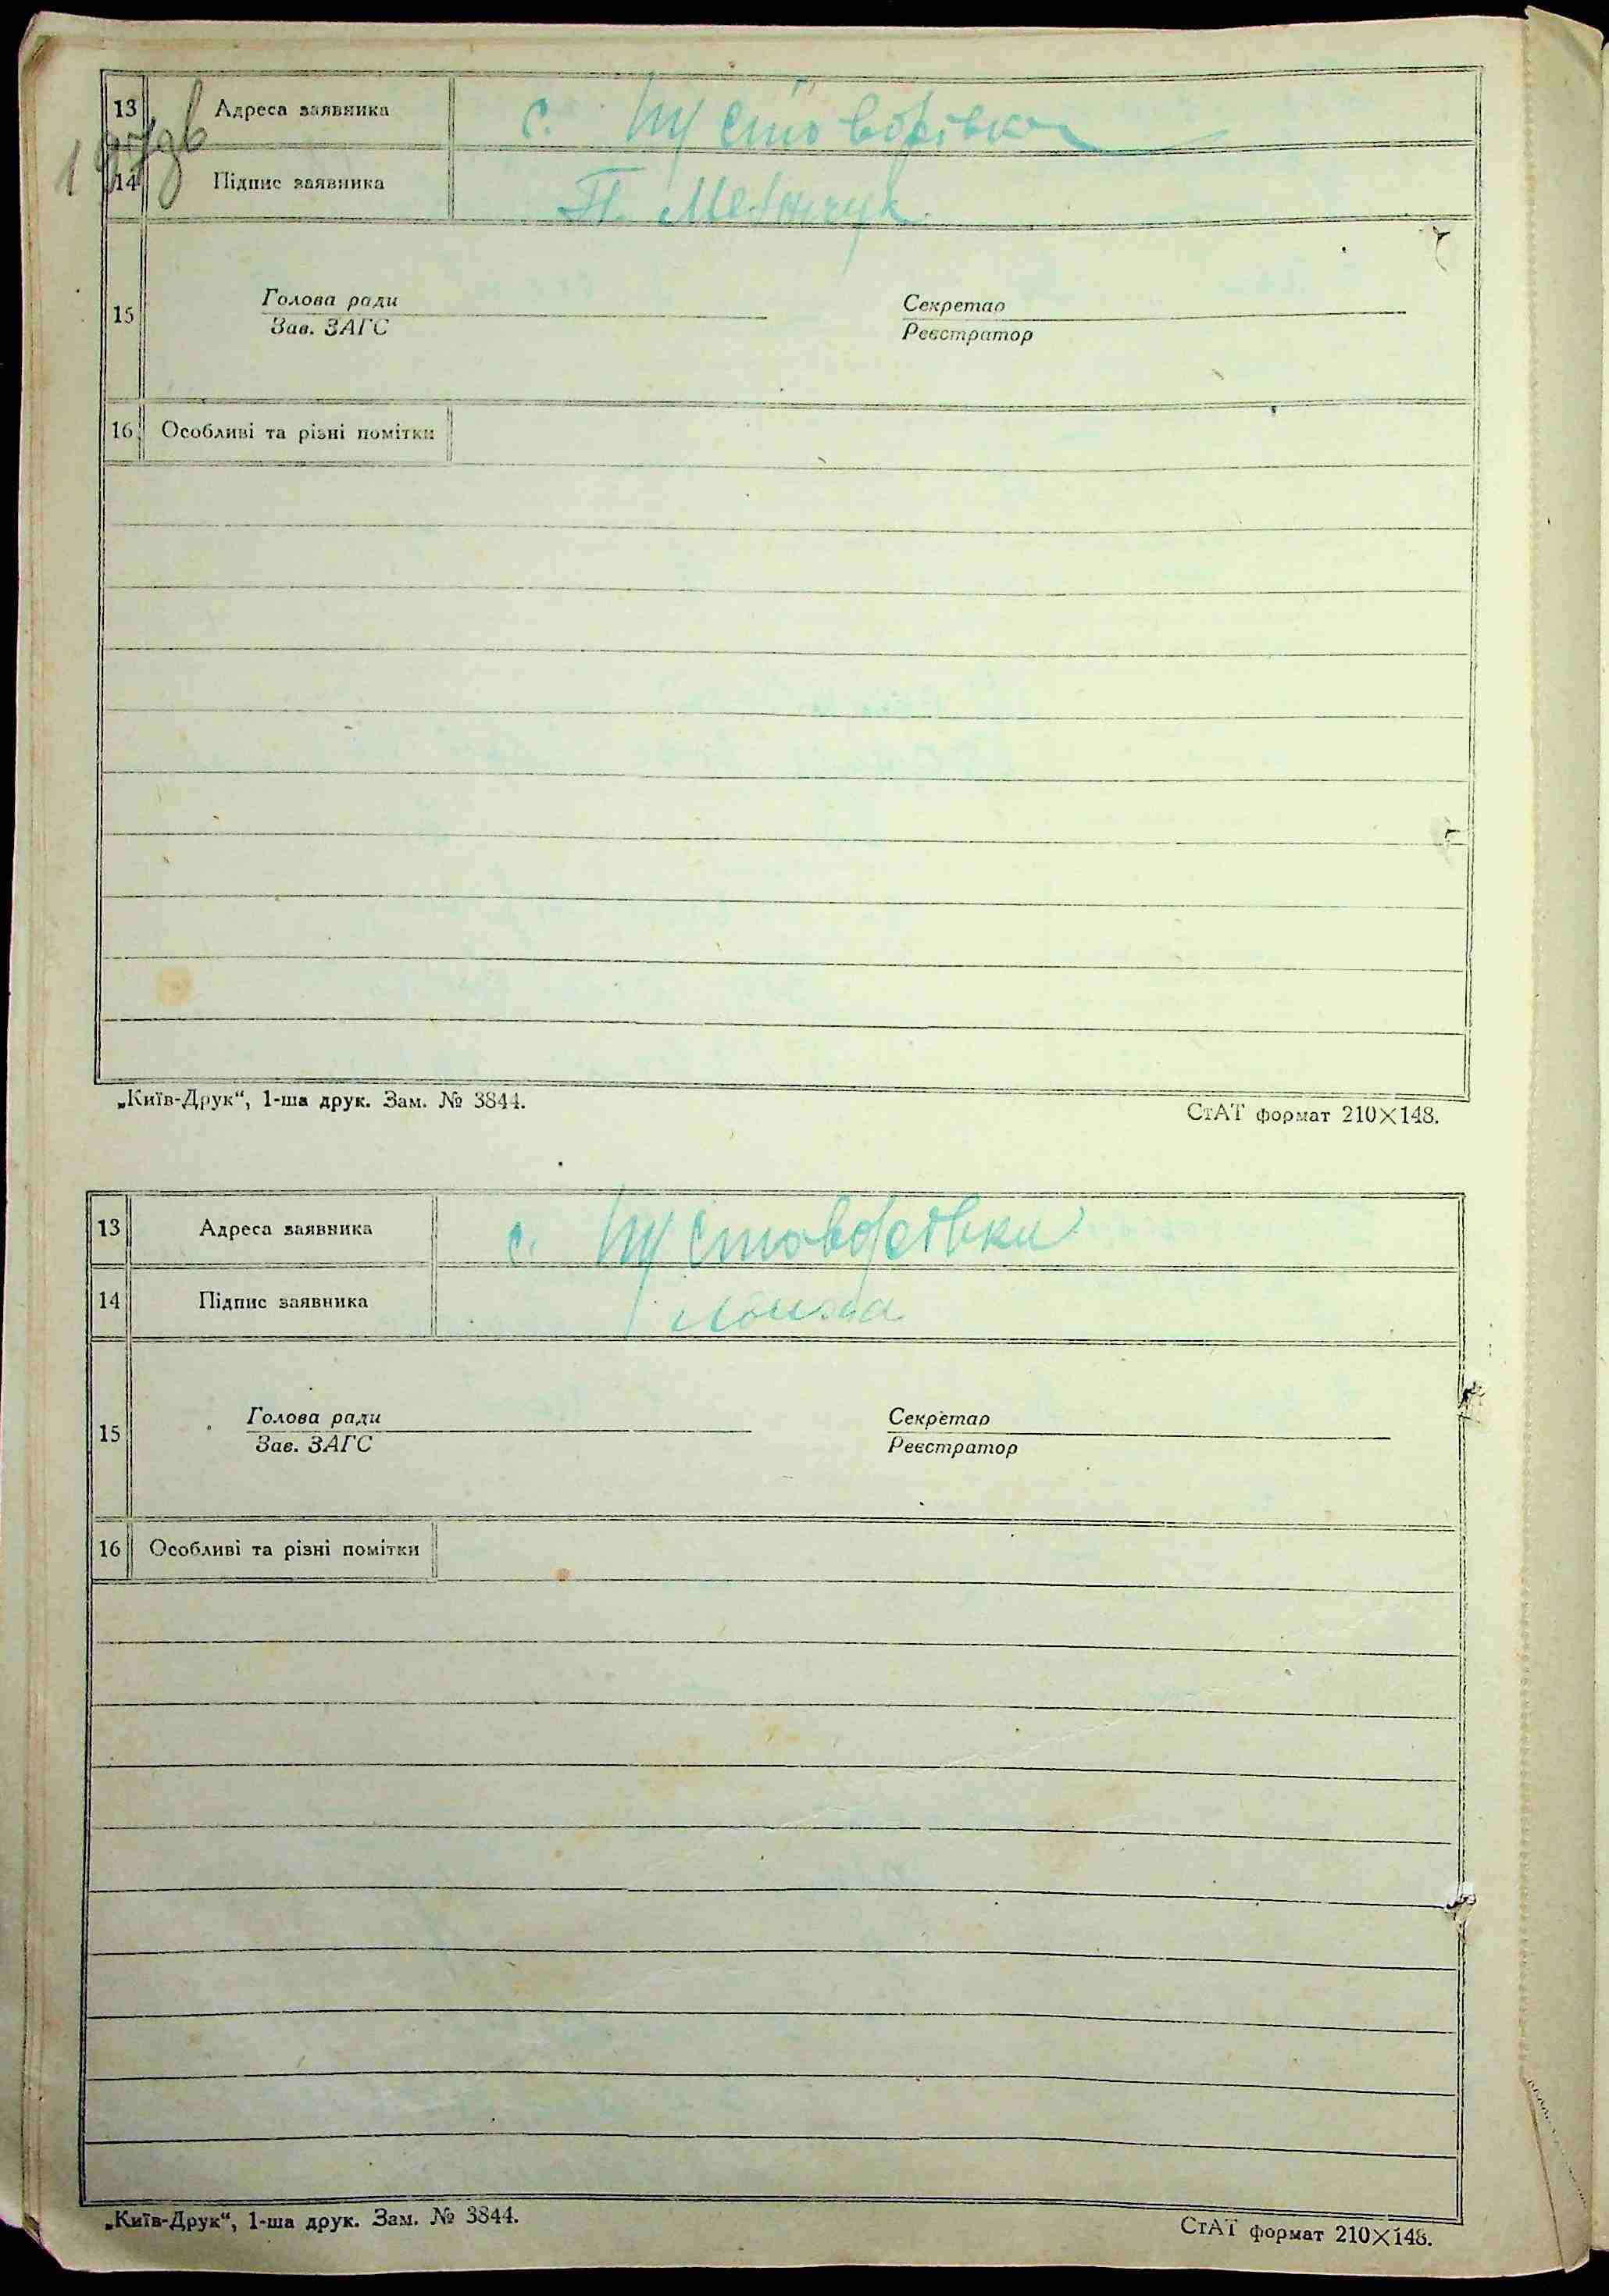 13 Адреса заявника с. Пустоворівка
14 Підпис заявника П.
15 Голова ради Секретар
Зав. ЗАГС Реєстратор
16 Особливі та різні помітки
„Київ-Друк“, 1-ша друк. Зам. № 3844. СтАТ формат 210×148.
13 Адреса заявника с.
14 Підпис заявника
15 Голова ради Секретар
Зав. ЗАГС Реєстратор
16 Особливі та різні помітки
„Київ-Друк“, 1-ша друк. Зам. № 3844. СтАТ формат 210×148.